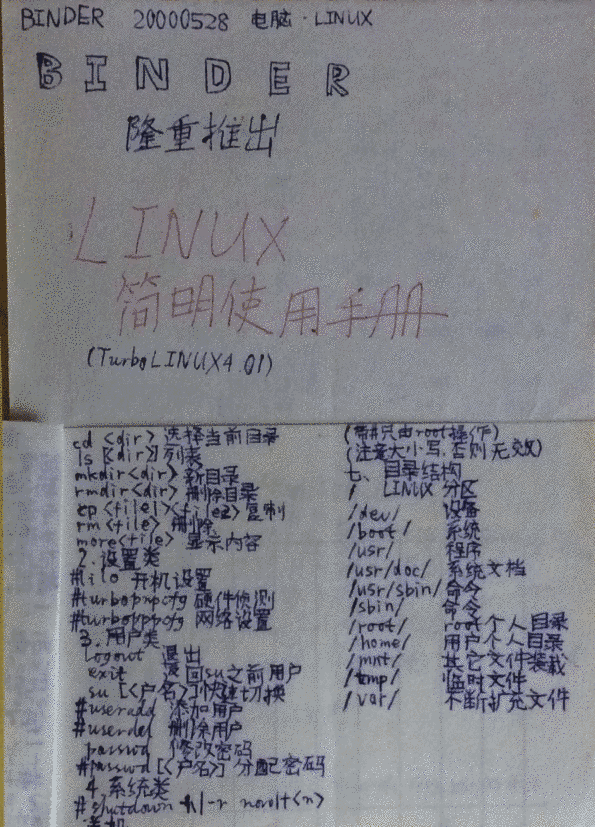 BINDER 20000528 电脑·LINUX
BINDER
隆重推出
LINUX
简明使用手册
(TurboLINUX4.01)
cd <dir> 选择当前目录
ls [<dir>] 列表
mkdir<dir> 新目录
rmdir<dir> 删除目录
cp <file1><file2> 复制
rm <file> 删除
more<file> 显示内容
2.设置类
#lilo 开机设置
#turbopnpcfg 硬件侦测
#turbopppcfg 网络设置
3.用户类
logout 退出
exit 返回su之前用户
su [<户名>] 快速切换
#useradd 添加用户
#userdel 删除用户
passwd 修改密码
#passwd [<户名>] 分配密码
4.系统类
#shutdown -h|-r now|+<n>
关机
(带#只由root操作)
(注意大小写,否则无效)
七、目录结构
/ LINUX 分区
/dev/ 设备
/boot/ 系统
/usr/ 程序
/usr/doc/ 系统文档
/usr/sbin/ 命令
/sbin/ 命令
/root/ root个人目录
/home/ 用户个人目录
/mnt/ 其它文件装载
/tmp/ 临时文件
/var/ 不断扩充文件